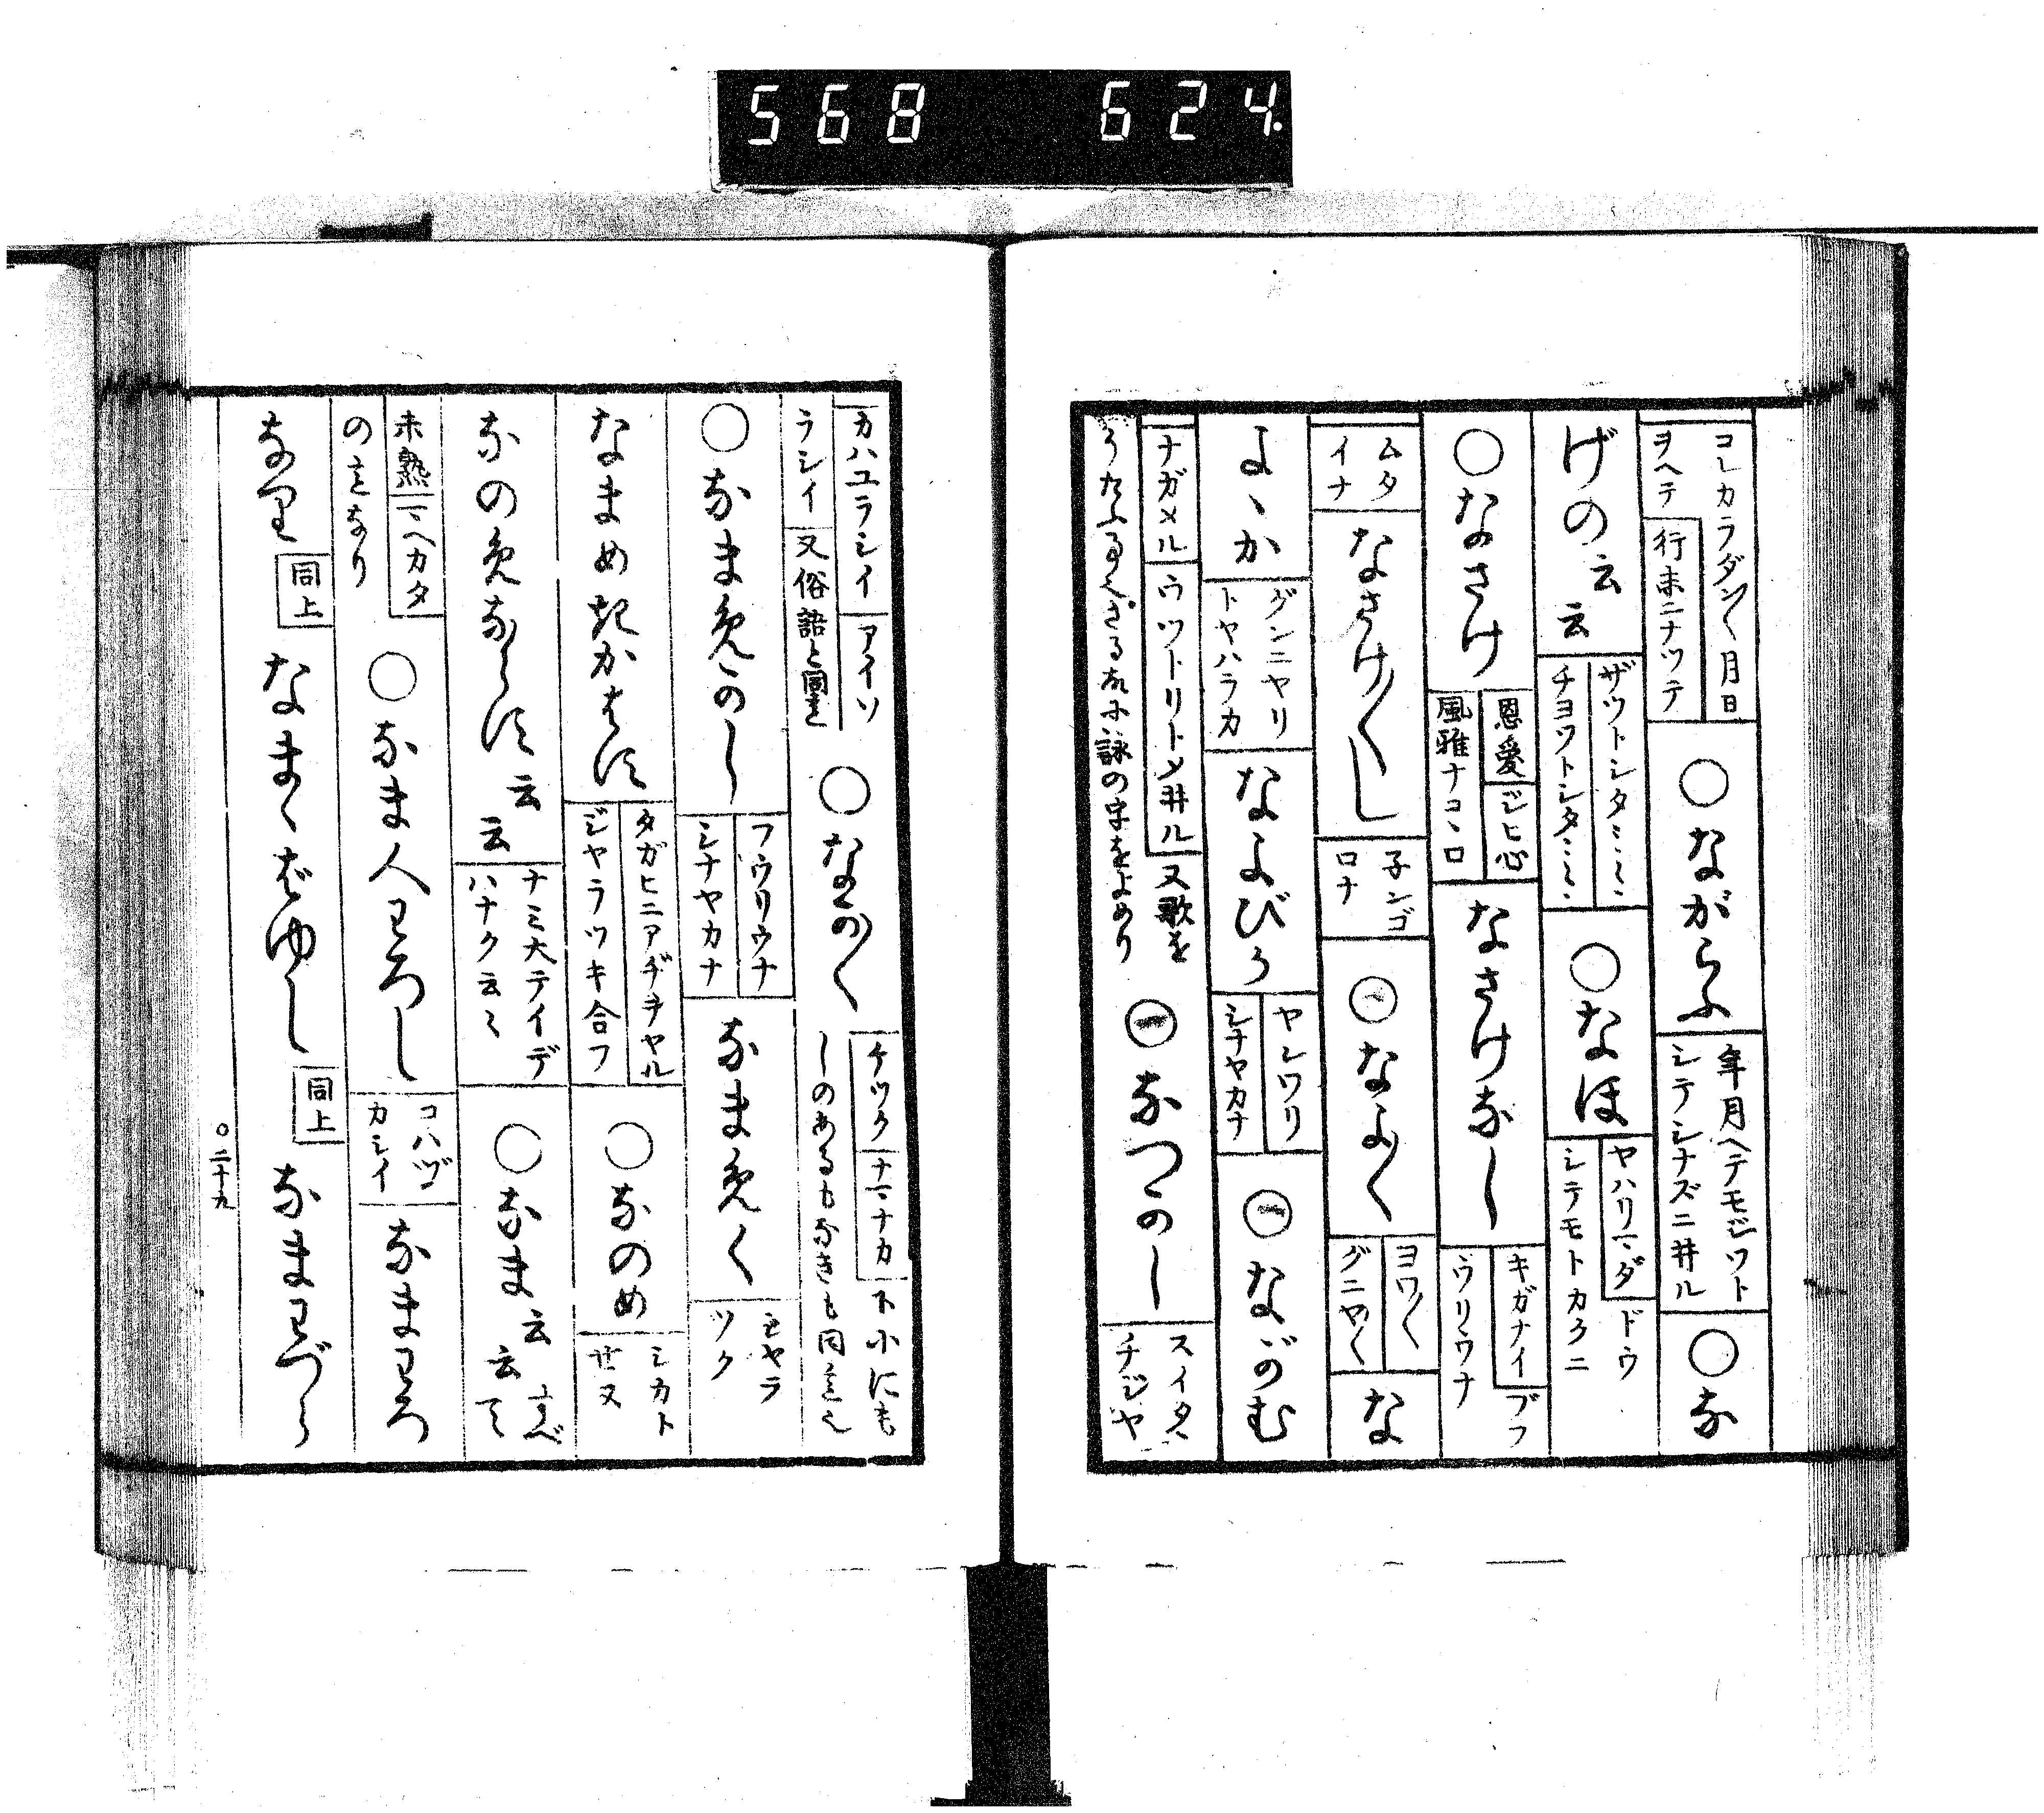 568 624.
コレカラダン〳〵月日
ヲヘテ 行末ニナツテ
○ながらふ
年月ヘテモジツト
シテシナズニ井ル
○な
げの云云
ザツトシタ〻〻〻
チヨツトシタ〻〻〻
○なほ
ヤハリ マダ ドウ
シテモトカクニ
○なさけ
恩愛 ジヒ心
風雅ナコヽロ
なさけなし
キガナイ ブフ
ウリウナ
ムタ
イナ
なさけ〳〵し
子ンゴ
ロナ
なよ〳〵
ヨワ〳〵
グニヤ〳〵
な
よゝか
グンニヤリ
トヤハラカ
なよびか
ヤンワリ
シナヤカナ
ながむ
ナガメル ウツトリトメ井ル 又歌を
なつかし
スイタ
チジヤ
カハユラシイ アイソ
ラシイ 又俗語と同き
○なか〳〵
ケツク ナマナカ 下小にも
○なまめかし
フウリウナ
シナヤカナ
なまめく
ジヤラ
ツク
なまめきかはす
タガヒニアヂヲヤル
ジヤラツキ合フ
○なのめ
シカト
せヌ
なのめならず云云
ナミ大テイデ
ハナク云々
○なま云云
すべて
未熟 マヘカタ
のをなり
○なま人わろし
コハヅ
カシイ
なまわろ
なり
同上
なまゝばゆし
同上
なまわづら
○二十九